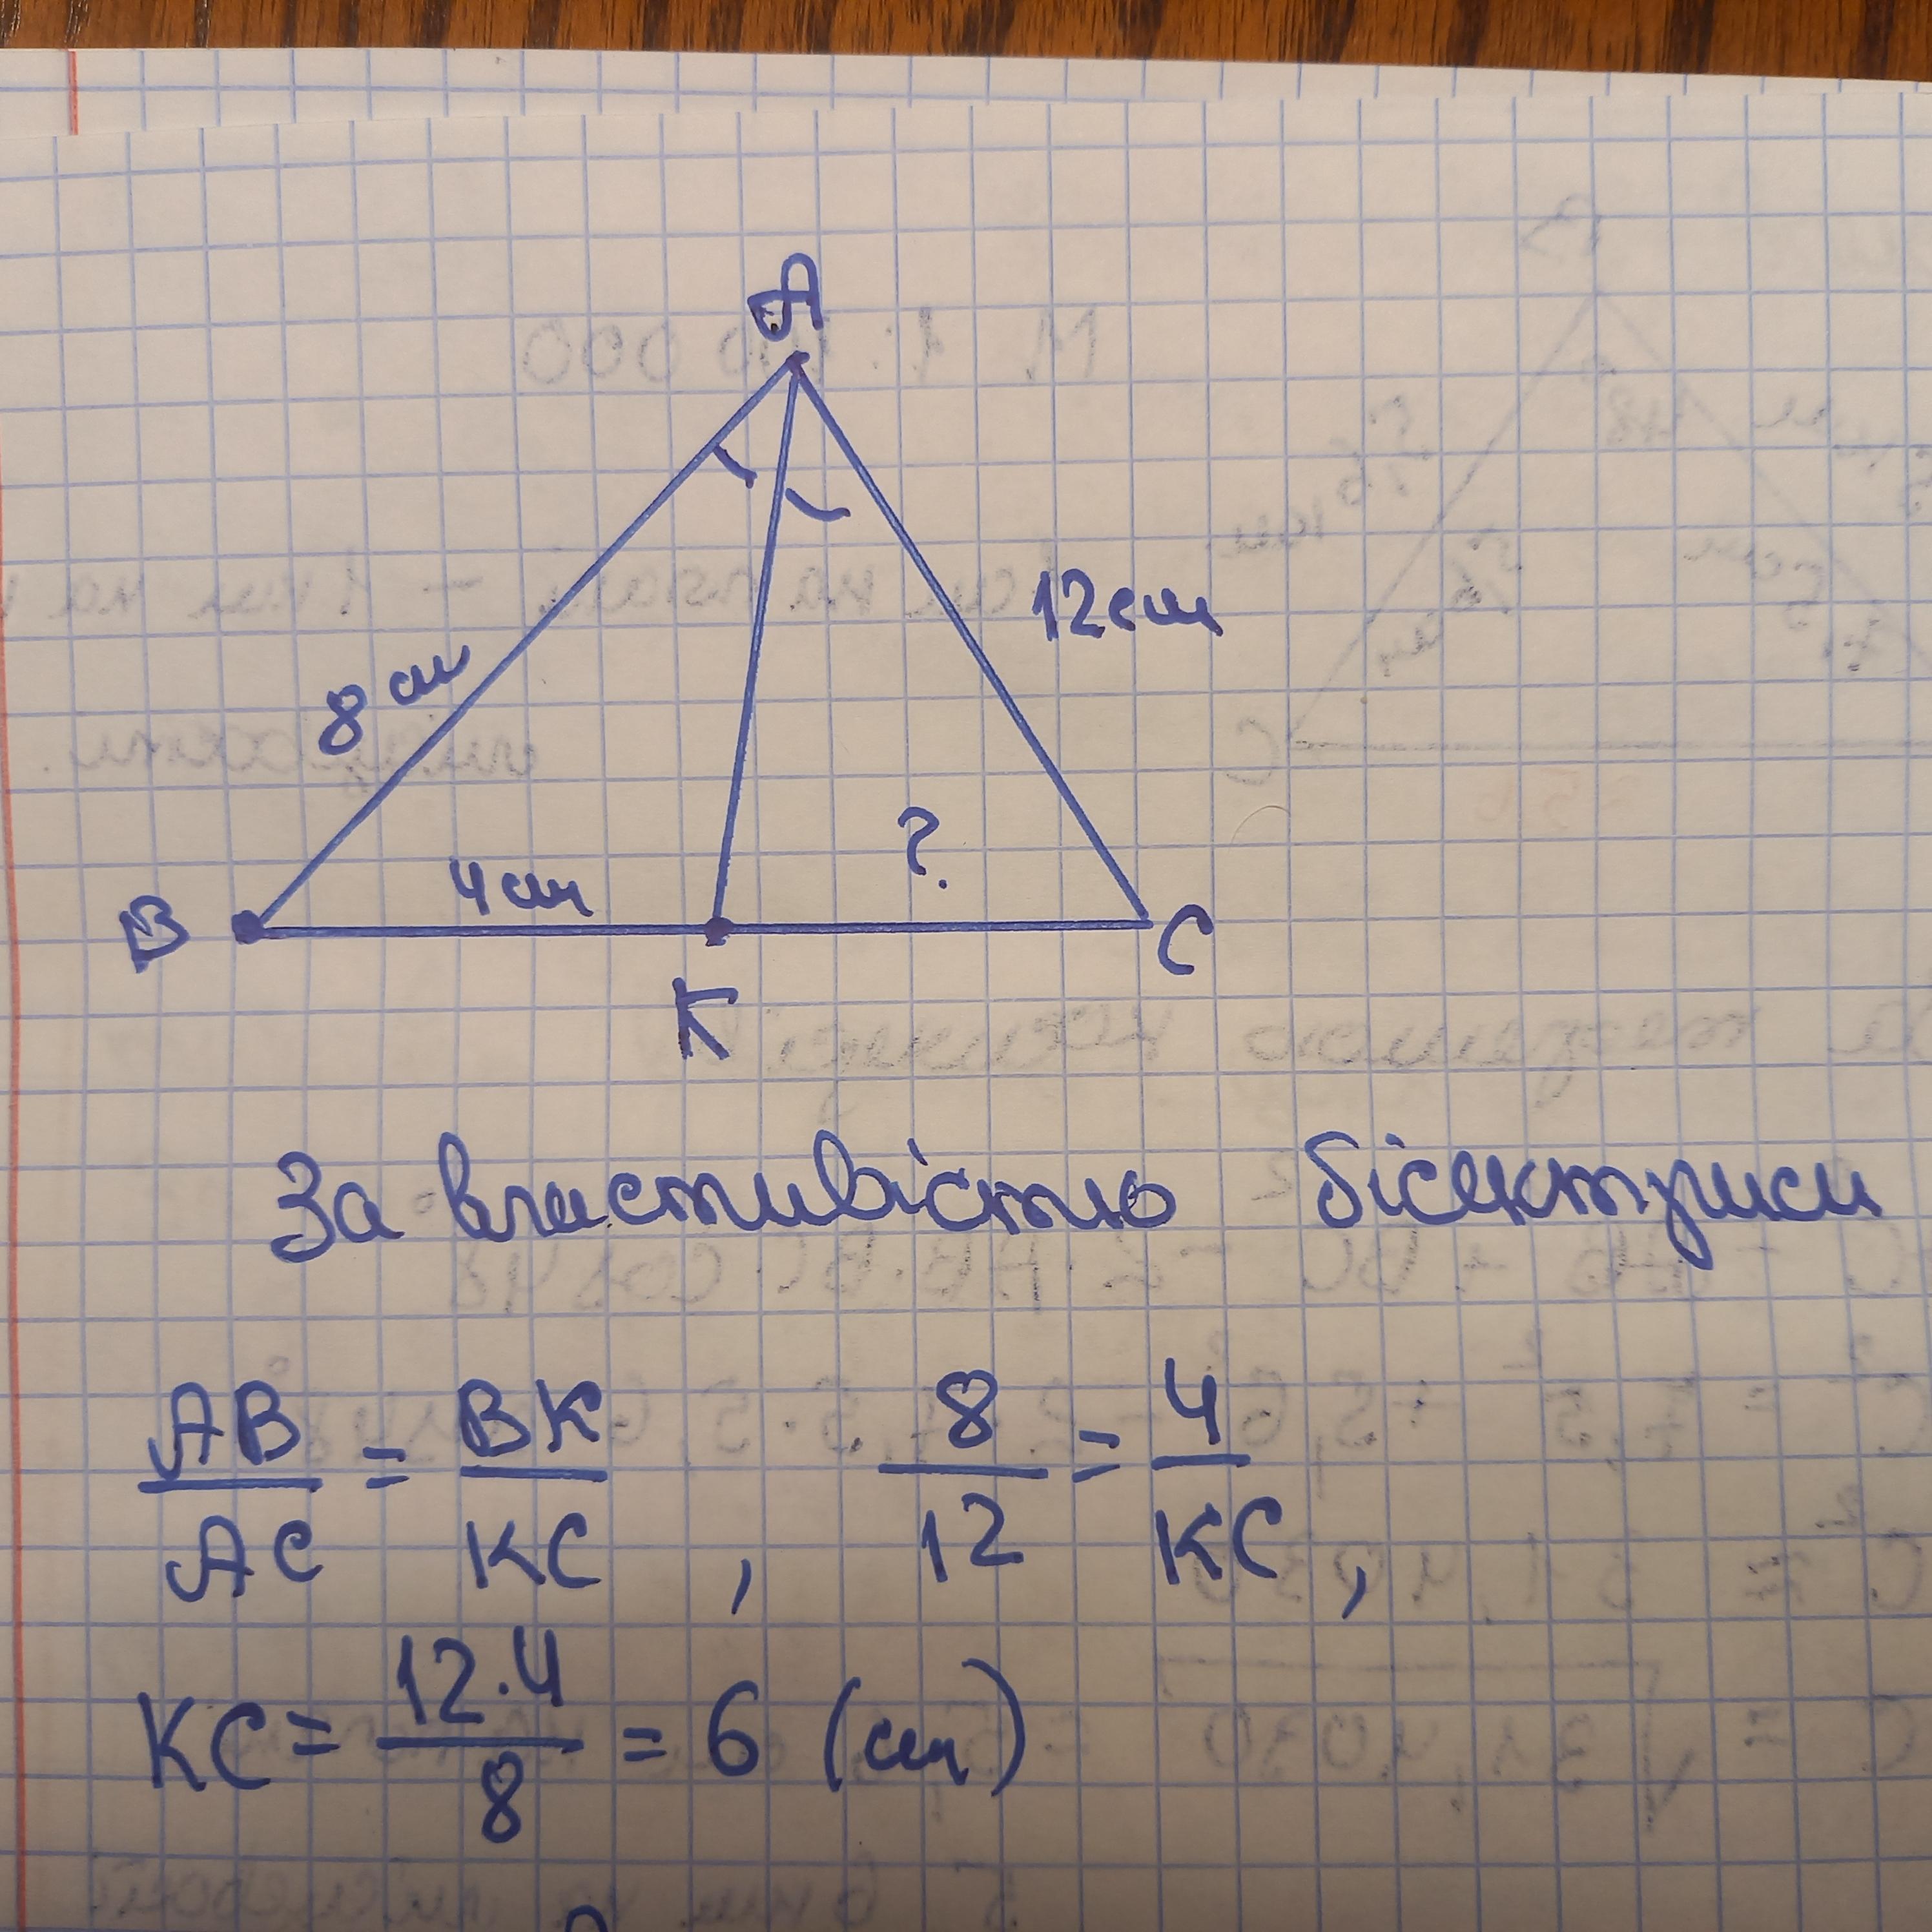 A
12см
8 см
?
4 см
B
C
K
За властивістю бісектриси
AB/AC = BK/KC , 8/12 = 4/KC ,
KC = 12·4/8 = 6 (см)